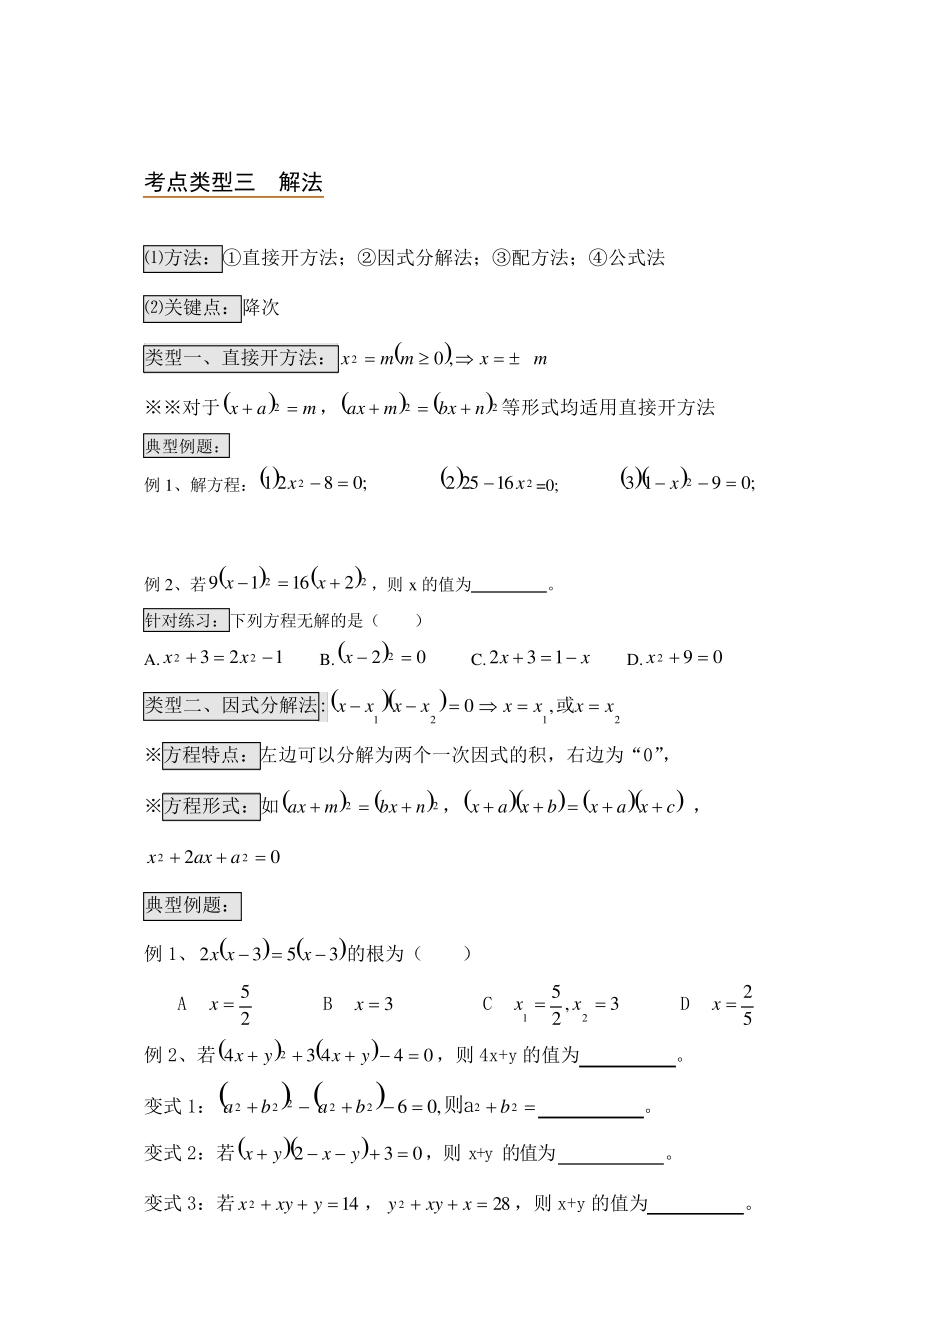 考点类型三　解法
⑴方法：①直接开方法；②因式分解法；③配方法；④公式法
⑵关键点：降次
类型一、直接开方法：x² = m(m ≥ 0), ⇒ x = ± m
※※对于(x + a)² = m，(ax + m)² = (bx + n)²等形式均适用直接开方法
典型例题：
例 1、解方程：(1)2x² − 8 = 0; (2)25 − 16x²=0; (3)(1 − x)² − 9 = 0;
例 2、若9(x − 1)² = 16(x + 2)²，则 x 的值为________。
针对练习：下列方程无解的是（　　）
A. x² + 3 = 2x² − 1 B. (x − 2)² = 0 C. 2x + 3 = 1 − x D. x² + 9 = 0
类型二、因式分解法:(x − x₁)(x − x₂) = 0 ⇒ x = x₁,或x = x₂
※方程特点：左边可以分解为两个一次因式的积，右边为“0”，
※方程形式：如(ax + m)² = (bx + n)²，(x + a)(x + b) = (x + a)(x + c)，
x² + 2ax + a² = 0
典型例题：
例 1、2x(x − 3) = 5(x − 3)的根为（　　）
A x = 5/2 B x = 3 C x₁ = 5/2, x₂ = 3 D x = 2/5
例 2、若(4x + y)² + 3(4x + y) − 4 = 0，则 4x+y 的值为________。
变式 1：(a² + b²)² − (a² + b²) − 6 = 0, 则a² + b² = ________。
变式 2：若(x + y)(2 − x − y) + 3 = 0，则 x+y 的值为________。
变式 3：若x² + xy + y = 14，y² + xy + x = 28，则 x+y 的值为________。